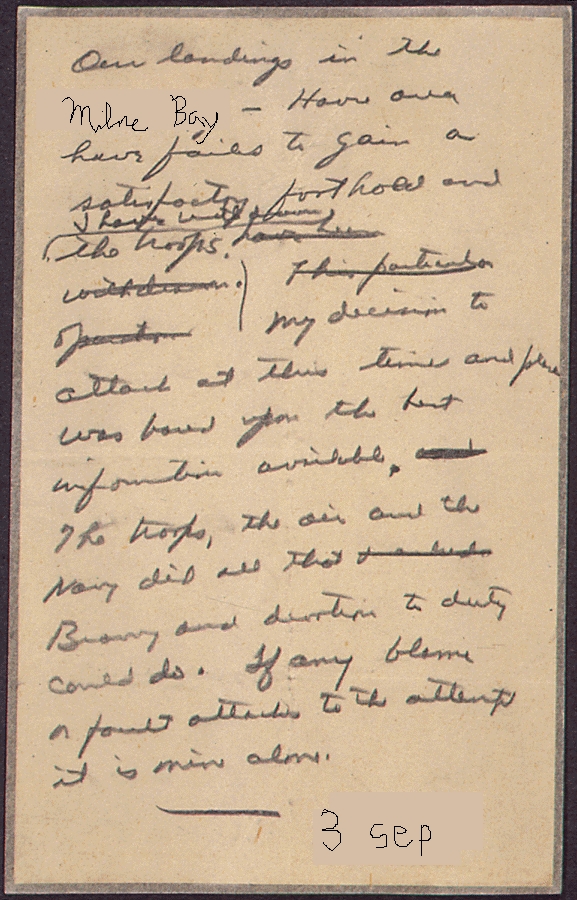 Our landings in the
Milne Bay — Havre area
have failed to gain a
satisfactory foothold and
I have withdrawn
the troops. have been
withdrawn. This particular
operation My decision to
attack at this time and place
was based upon the best
information available. and
The troops, the air and the
Navy did all that
Bravery and devotion to duty
could do. If any blame
or fault attaches to the attempt
it is mine alone.
3 sep